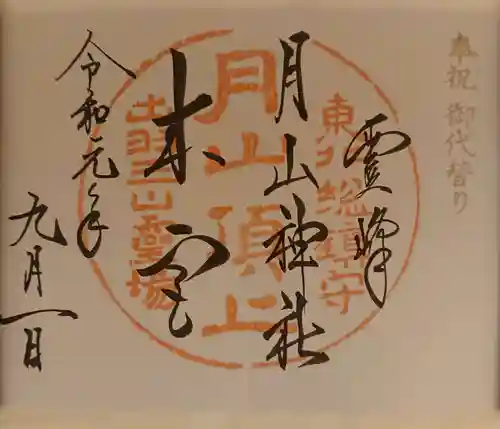 奉祝 御代替り
霊峰
月山神社
本宮
令和元年
九月一日
東北総鎮守
月山頂上
出羽三山霊場